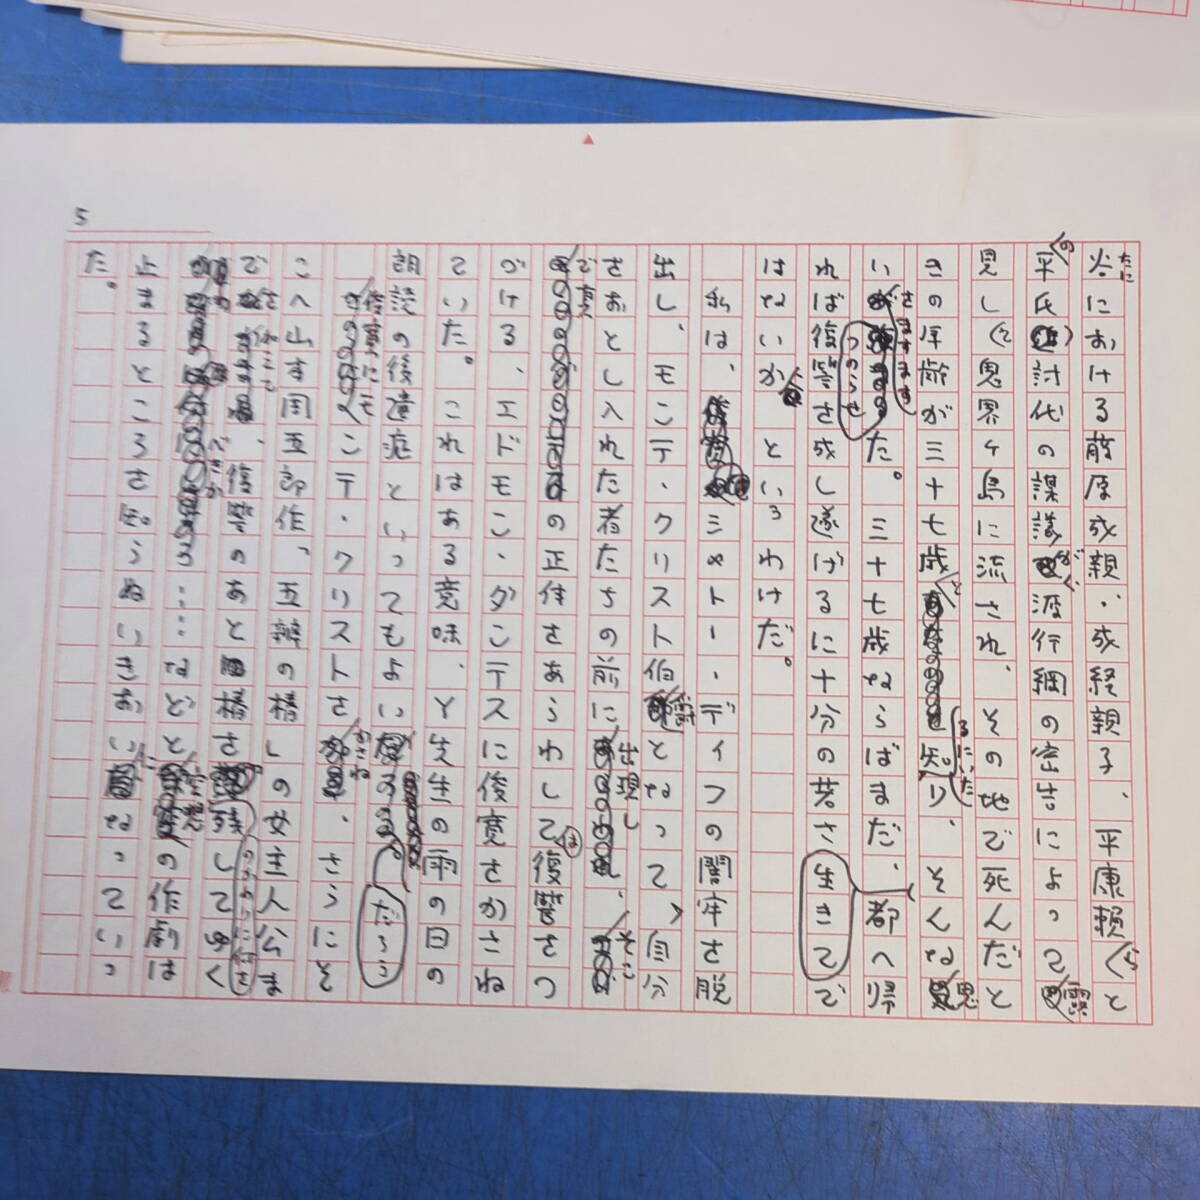 5
谷における藤原成親・成経親子、平康頼らと
平氏討伐の謀議が源行綱の密告によって露
見し、鬼界ヶ島に流され、その地で死んだと
きの年齢が三十七歳と知るにいた、そんな思
いをますますつのらせた。三十七歳ならばまだ、都へ帰
れば復讐を成し遂げるに十分の若さで
はないか、というわけだ。
私は、ミメトー・ディフの闇牢を脱
出し、モンテ・クリスト伯爵となって、自分
をおとし入れた者たちの前に出現し、そこ
で真の正体をあらわして復讐をつ
づける、エドモン・ダンテスに俊寛をかさね
ていた。これはある意味、Y先生の雨の日の
朗読の後遺症といってもよいだろう
俊寛にモンテ・クリストをかさね、さらにそ
こへ山本周五郎作、五瓣の椿しの女主人公ま
で加えて、復讐のあと椿を残してゆく
べきか……などと空想の作劇は
止まるところを知らぬいきおいになってい
た。